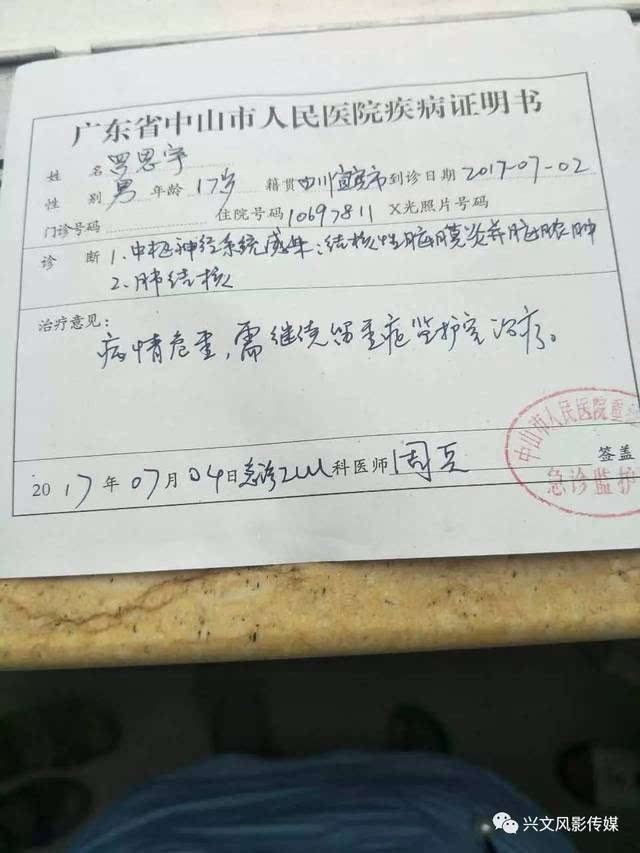 广东省中山市人民医院疾病证明书
姓 名 罗思宇
性 别 男 年龄 17岁 籍贯 四川宜宾市 到诊日期 2017-07-02
门诊号码 住院号码 10697811 X光照片号码
诊 断 1.中枢神经系统感染:结核性脑膜炎并脑脓肿
2.肺结核
治疗意见:
病情危重,需继续留重症监护室治疗。
中山市人民医院重
急诊监护
签盖
2017年07月04日急诊ICU科医师周
兴文风影传媒